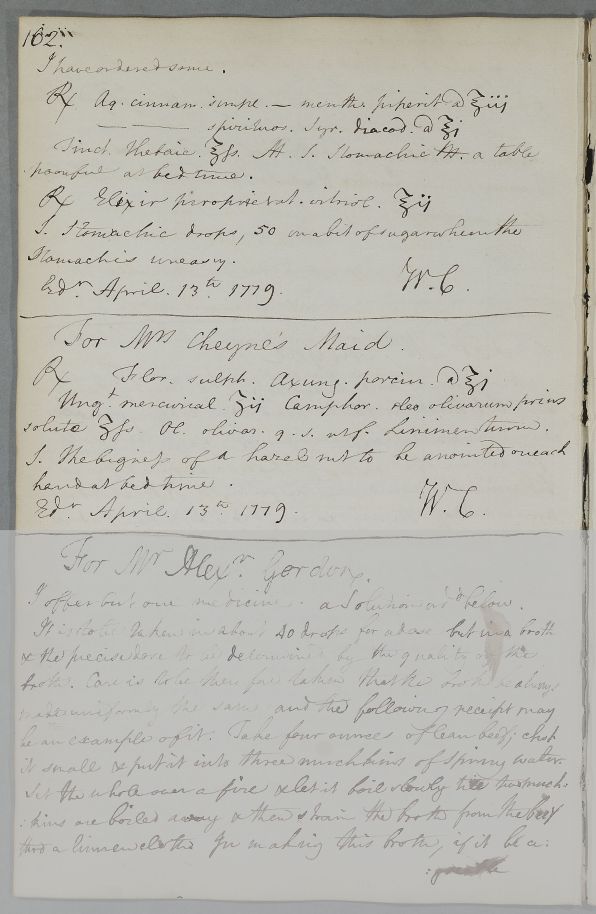 162.
I have ordered some.
℞ Aq. cinnam. simpl. — menthæ piperit a ℥iij
—— spirituos. Syr. diacod. a ℥j
Tinct. Thebaic. ℥ss. M. S. Stomachic M. a table
spoonful at bedtime.
℞ Elixir propriet at. vitriol. ℥ij
S. Stomachic drops, 50 on a bit of sugar when the
stomach is uneasy.
Edr. April. 13th 1779. W.C.
For Mrs Cheyne's Maid.
℞ Flor. sulph. Axung. porcin. a ℥j
Ungt. mercurial. ʒij Camphor. oleo olivarum prius
solutæ ʒss Ol. olivar. q. s. ut f. Linimentum.
S. The bigness of a hazel nut to be anointed on each
hand at bed time.
Edr April. 13th 1779. W.C.
For Mr Alexr. Gordon.
I offer but one medicine. a Solution as below.
It is to be taken in about 40 drops for a dose but in a broth
& the precise dose to be determined by the quality of the
broth. Care is to be therefore taken that the broth be always
made uniformly the same and the following receipt may
be an example of it. Take four ounces of lean beef; chop
it small & put it into three mutchkins of Spring water.
Set the whole over a fire & let it boil slowly till two mutch:
:kins are boiled away & then strain the broth from the beef
thro a linnen cloth In making this broth, if it be a: